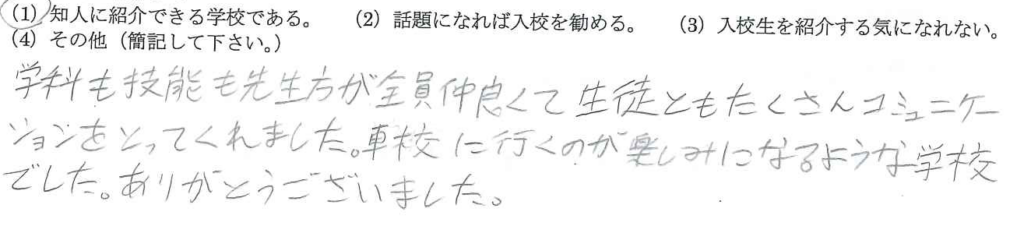 (1) 知人に紹介できる学校である。 (2) 話題になれば入校を勧める。 (3) 入校生を紹介する気になれない。
(4) その他(簡記して下さい。)
学科も技能も先生方が全員仲良くて生徒ともたくさんコミュニケー
ションをとってくれました。車校に行くのが楽しみになるような学校
でした。ありがとうございました。